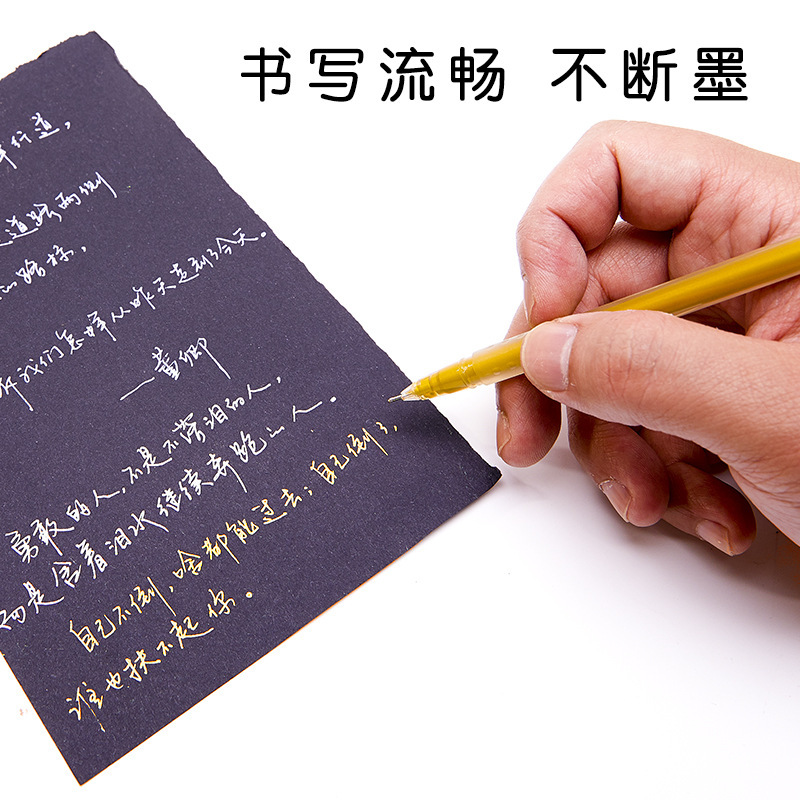 书写流畅 不断墨
行道，
道路两侧
的路标，
我们怎样从昨天走到了今天。
—董卿
勇敢的人，不是不落泪的人，
而是含着泪水继续奔跑的人。
自己不倒，啥都能过去；自己倒了，
谁也扶不起你。